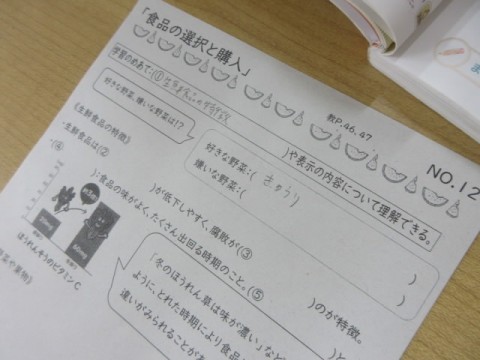 「食品の選択と購入」
教P.46,47
NO.12
学習のめあて：(①生鮮食品の特徴 )や表示の内容について理解できる。
好きな野菜、嫌いな野菜は!?
好きな野菜：( きゅうり )
嫌いな野菜：( )
《生鮮食品の特徴》
・生鮮食品は(② )が低下しやすく、腐敗が(③ )のが特徴。
・(④ )：食品の味がよく、たくさん出回る時期のこと。(⑤
ほうれんそうのビタミンC
「冬のほうれん草は味が濃い」など
ように、とれた時期により食品
違いがみられることがあ